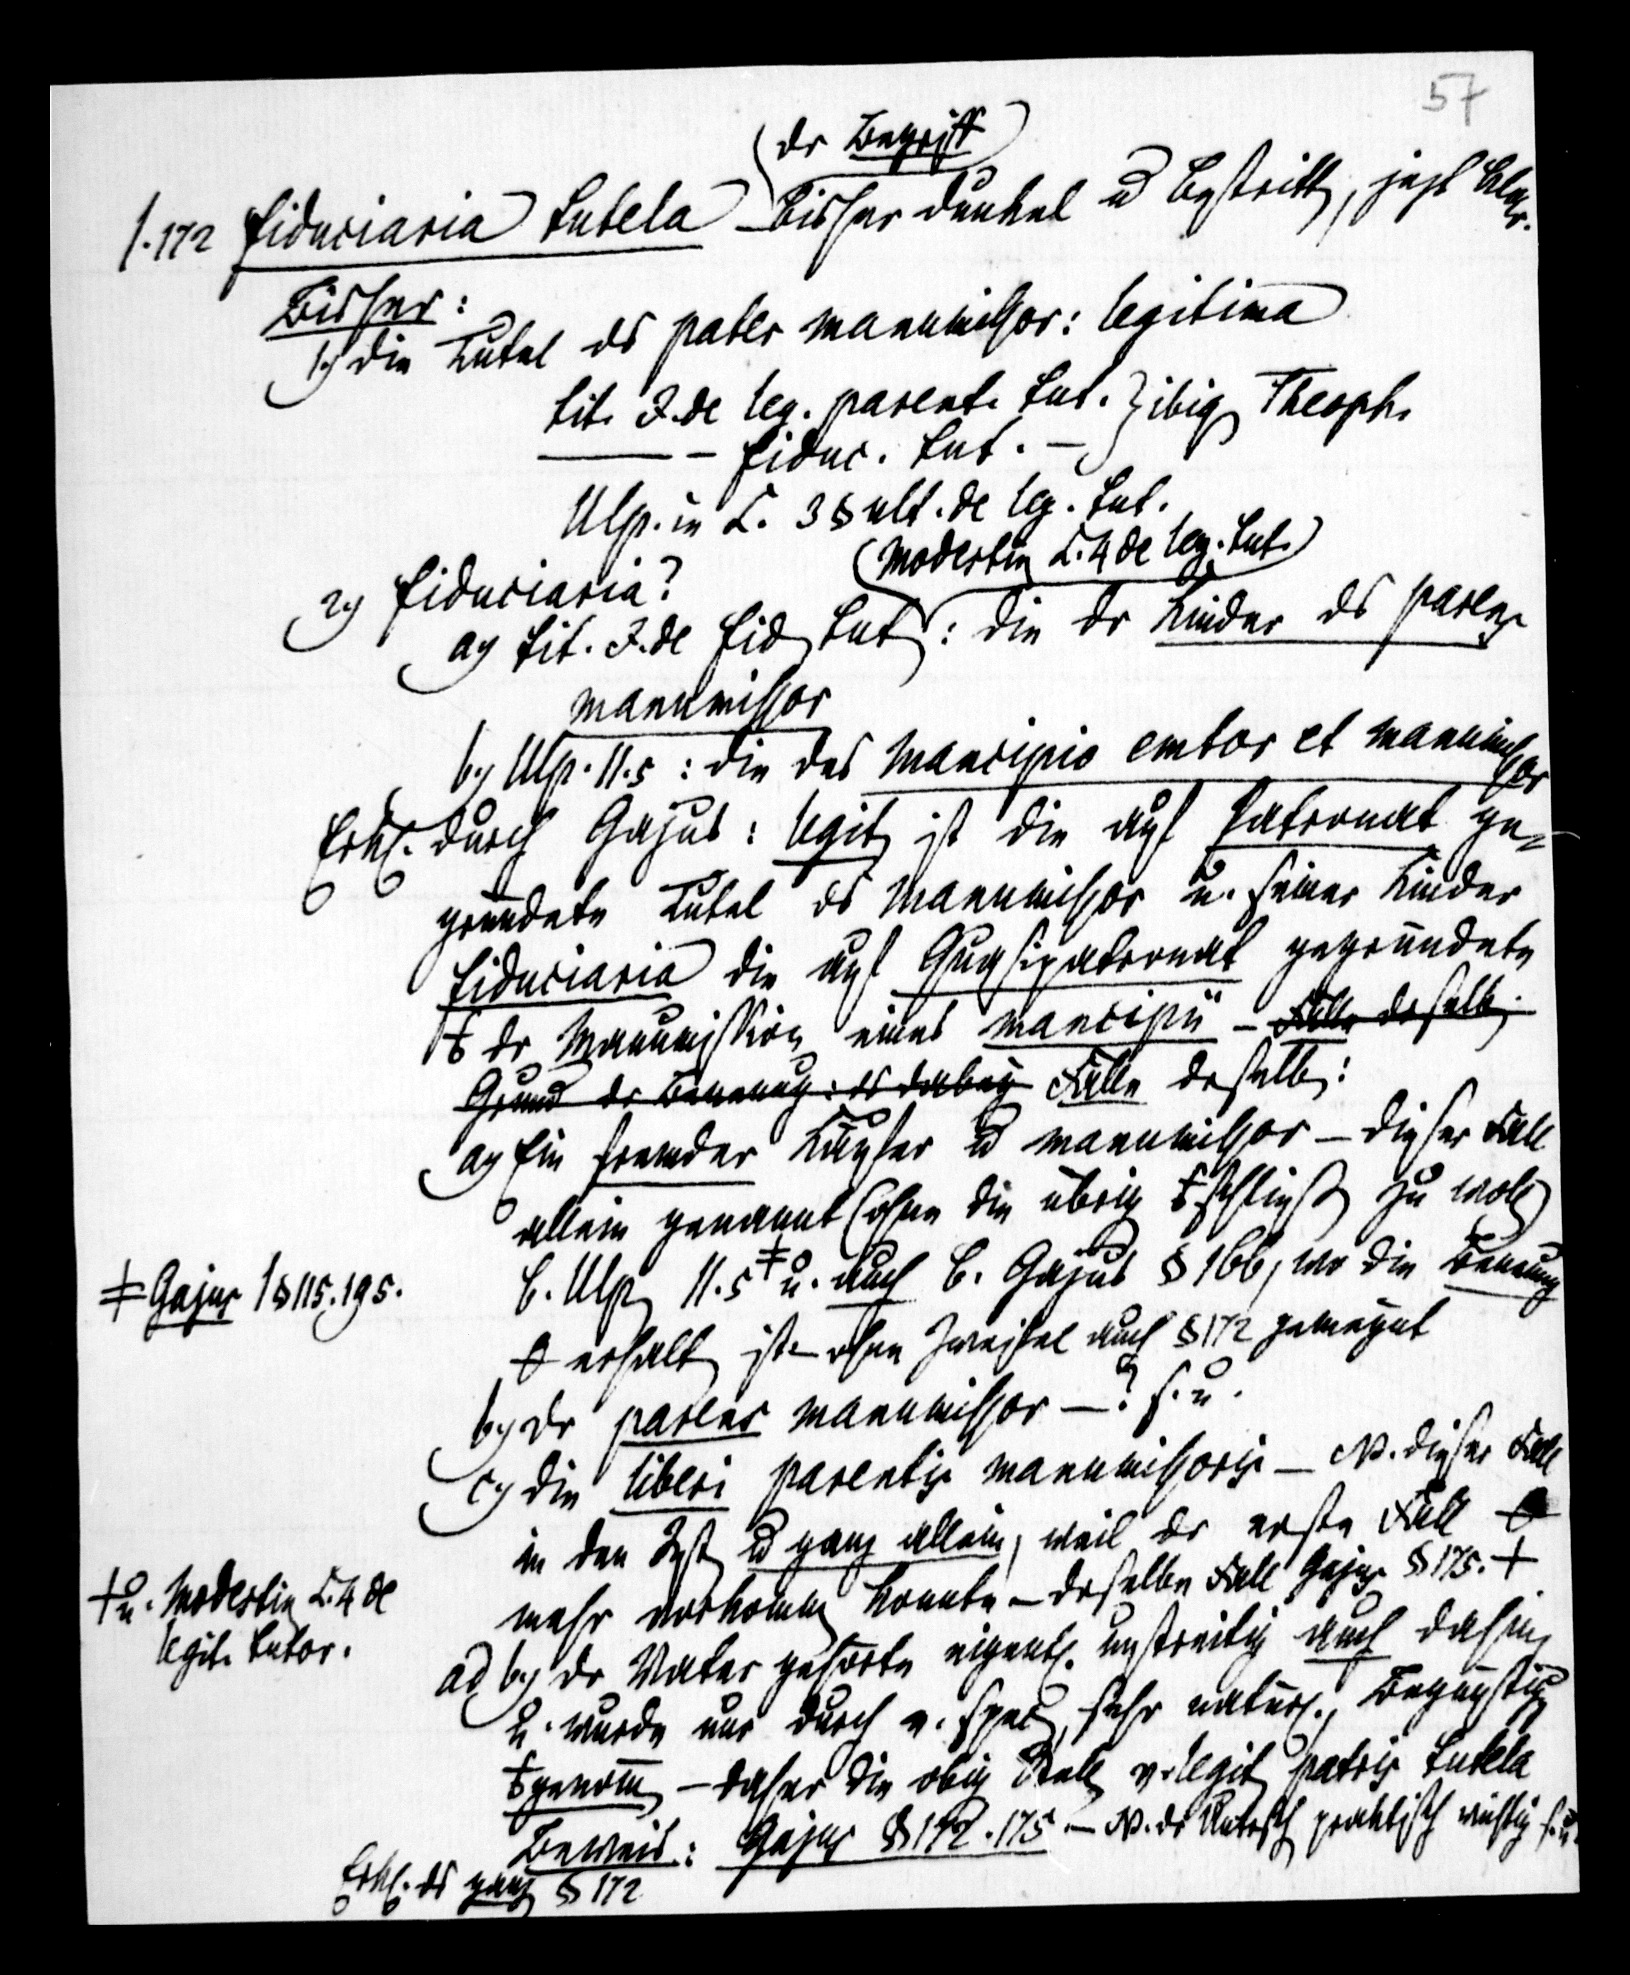 57
der Begriff
1.172 fiduciaria tutela – bisher dunkel u bestritt, jezt klar.
Bisher:
1.) die Tutel ds pater manumissor: legitima
tit. J. de leg. parent. tut. } ibiq Theoph.
——— – fiduc. tut. –
Ulp. in L. 3 § ult. de leg. tut.
Modestin L. 4 de leg. tut.
2) fiduciaria?
a) tit. J. de fid tut : die dr Kinder ds parens
manumissor
b) Ulp. 11.5 : die des mancipio emtor et manumissor
Erkl. durch Gajus : legit ist die auf Patronat ge-
gründete Tutel ds Manumissor u. seiner Kinder
fiduciaria die auf Quasipatronat gegründete
dr Manumission eines mancipii – Fälle desselb.
Grund dr Benennung: ds dabey Fälle desselb:
a) Ein fremder Käufer u manumissor – dieser Fall
allein genannt (ohne die übrig schließ zu woll
b. Ulp 11.5 ‡ u. auch b. Gajus § 166, wo die Benennung
‡ Gajus 1 § 115. 195.
erhalt ist – ohne Zweifel auch § 172 gemeynt
b) dr parens manumissor – ? s. u.
c) die liberi parentis manumissoris – N. dieser Fall
in den Inst u ganz allein, weil dr erste Fall
mehr vorkomm konnte – derselbe Fall Gajus § 175. +
+ u. Modestin L. 4 de
legit. tutor.
ad b) dr Vater gehörte eigentl. unstreitig auch dahin
u. wurde nur durch e. spec, sehr natürl., Begünstig
genomm – daher die obig Stell v. legit patris tutela
Beweis: Gajus § 172. 175. – N. dr Untersch praktisch wichtig s. u.
Erkl. ds ganz § 172